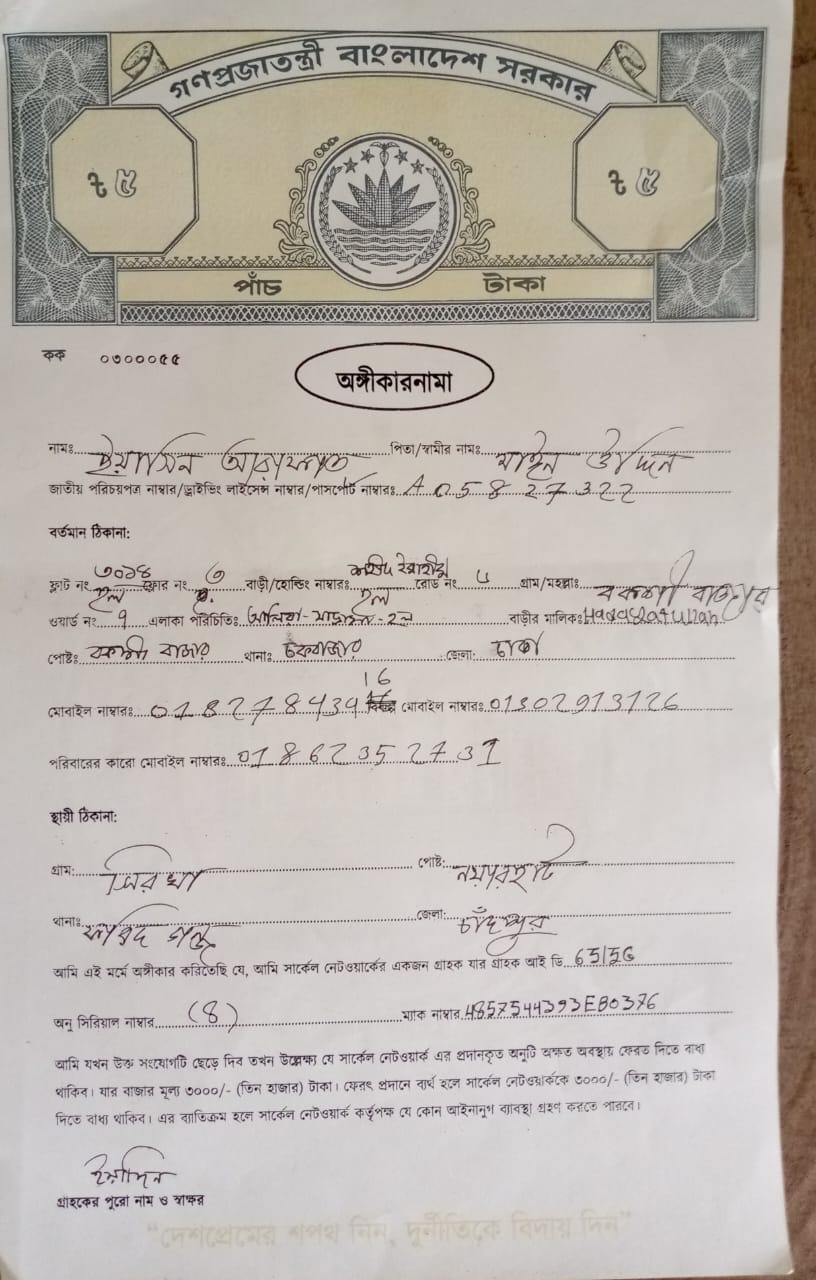 গণপ্রজাতন্ত্রী বাংলাদেশ সরকার
৳ ৫ ৳ ৫
পাঁচ টাকা
কক ০৩০০০৫৫
অঙ্গীকারনামা
নামঃ ইয়াসিন আরাফাত পিতা/স্বামীর নামঃ মাঈন উদ্দিন
জাতীয় পরিচয়পত্র নাম্বার/ড্রাইভিং লাইসেন্স নাম্বার/পাসপোর্ট নাম্বারঃ A 05827322
বর্তমান ঠিকানা:
ফ্লাট নং ৩০১৪ ফ্লোর নং ৩ বাড়ী/হোল্ডিং নাম্বারঃ হল রোড নং গ্রাম/মহল্লাঃ বকশী বাজার
ওয়ার্ড নং ৭ এলাকা পরিচিতিঃ আলিয়া-মাদ্রাসা-হল বাড়ীর মালিকঃ
পোষ্টঃ বকশী বাজার থানাঃ চকবাজার জেলাঃ ঢাকা
মোবাইল নাম্বারঃ 0182784391 16 বিকল্প মোবাইল নাম্বারঃ 01302913126
পরিবারের কারো মোবাইল নাম্বারঃ 01862352731
স্থায়ী ঠিকানা:
গ্রাম: পোষ্ট: নয়ারহাট
থানাঃ ফরিদগঞ্জ জেলা: চাঁদপুর
আমি এই মর্মে অঙ্গীকার করিতেছি যে, আমি সার্কেল নেটওয়ার্কের একজন গ্রাহক যার গ্রাহক আই ডি
অনু সিরিয়াল নাম্বার (8) ম্যাক নাম্বার 4857544393EB0376
আমি যখন উক্ত সংযোগটি ছেড়ে দিব তখন উল্লেক্ষ্য যে সার্কেল নেটওয়ার্ক এর প্রদানকৃত অনুটি অক্ষত অবস্থায় ফেরত দিতে বাধ্য
থাকিব। যার বাজার মূল্য ৩০০০/- (তিন হাজার) টাকা। ফেরৎ প্রদানে ব্যর্থ হলে সার্কেল নেটওয়ার্ককে ৩০০০/- (তিন হাজার) টাকা
দিতে বাধ্য থাকিব। এর ব্যাতিক্রম হলে সার্কেল নেটওয়ার্ক কর্তৃপক্ষ যে কোন আইনানুগ ব্যবস্থা গ্রহণ করতে পারবে।
ইয়াসিন
গ্রাহকের পুরো নাম ও স্বাক্ষর
"দেশপ্রেমের শপথ নিন, দুর্নীতিকে বিদায় দিন"